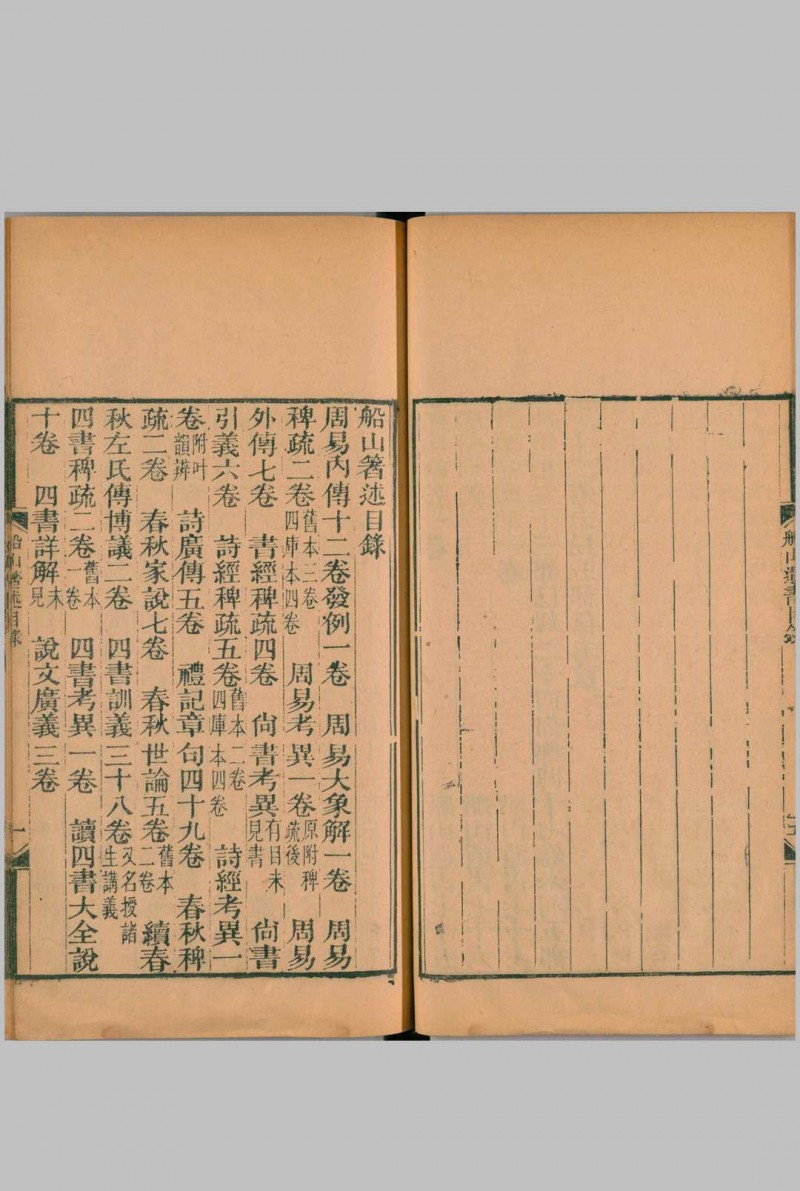 船山遺書目錄
船山箸述目錄
周易內傳十二卷發例一卷　周易大象解一卷　周易
稗疏二卷舊本三卷四庫本四卷　周易考異一卷原附稗疏後　周易
外傳七卷　書經稗疏四卷　尙書考異有目未見書　尙書
引義六卷　詩經稗疏五卷舊本二卷四庫本四卷　詩經考異一
卷附叶韻辨　詩廣傳五卷　禮記章句四十九卷　春秋稗
疏二卷　春秋家說七卷　春秋世論五卷舊本二卷　續春
秋左氏傳博議二卷　四書訓義三十八卷又名授諸生講義
四書稗疏二卷舊本一卷　四書考異一卷　讀四書大全說
十卷　四書詳解未見　說文廣義三卷
船山箸述目錄　一